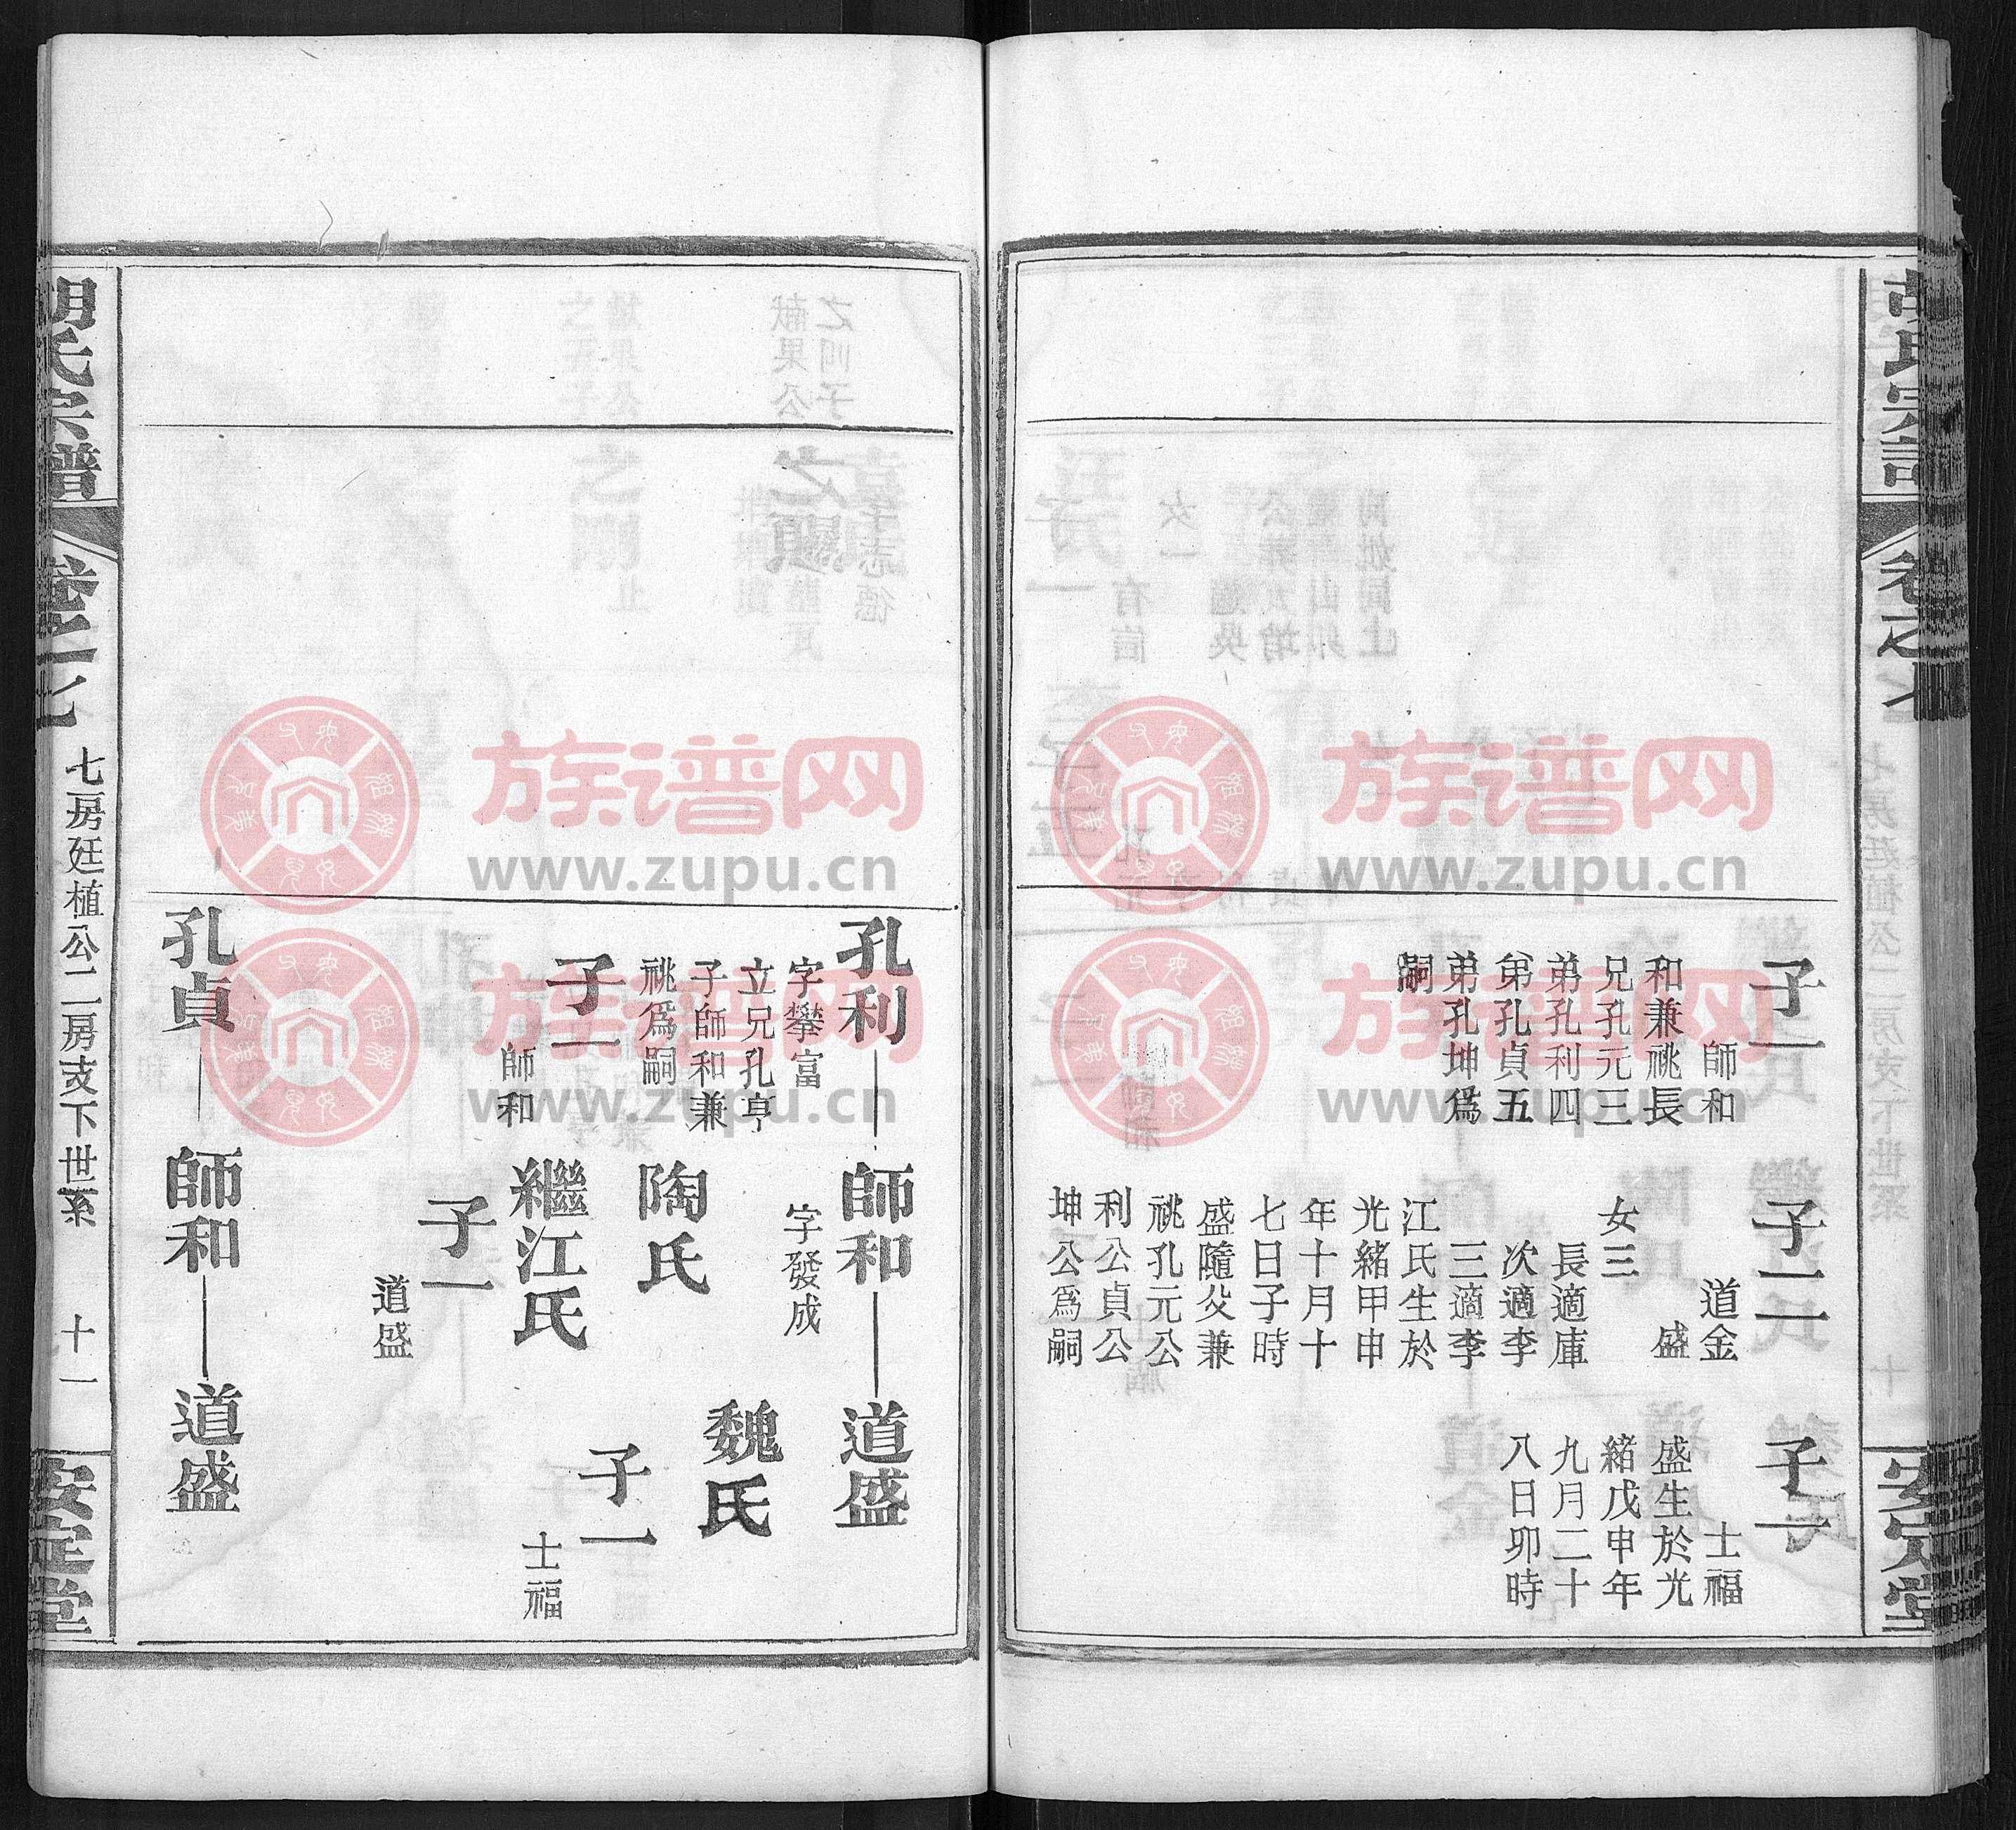 胡氏宗譜
卷之七
安定堂
子一
師和
和兼祧長
兄孔元三
弟孔利四
弟孔貞五
弟孔坤爲
嗣
子二
道金
盛
女三
長適庫
次適李
三適李
江氏生於
光緒甲申
年十月十
七日子時
盛隨父兼
祧孔元公
利公貞公
坤公爲嗣
子一
士福
盛生於光
緒戊申年
九月二十
八日卯時
孔利
師和
道盛
字攀富
立兄孔亨
子師和兼
祧爲嗣
子一
師和
字發成
陶氏
繼江氏
子一
道盛
魏氏
子一
士福
孔貞
師和
道盛
胡氏宗譜
卷之七
七房廷植公二房支下世系
十一
安定堂
族谱网
www.zupu.cn
族谱网
www.zupu.cn
族谱网
www.zupu.cn
族谱网
www.zupu.cn